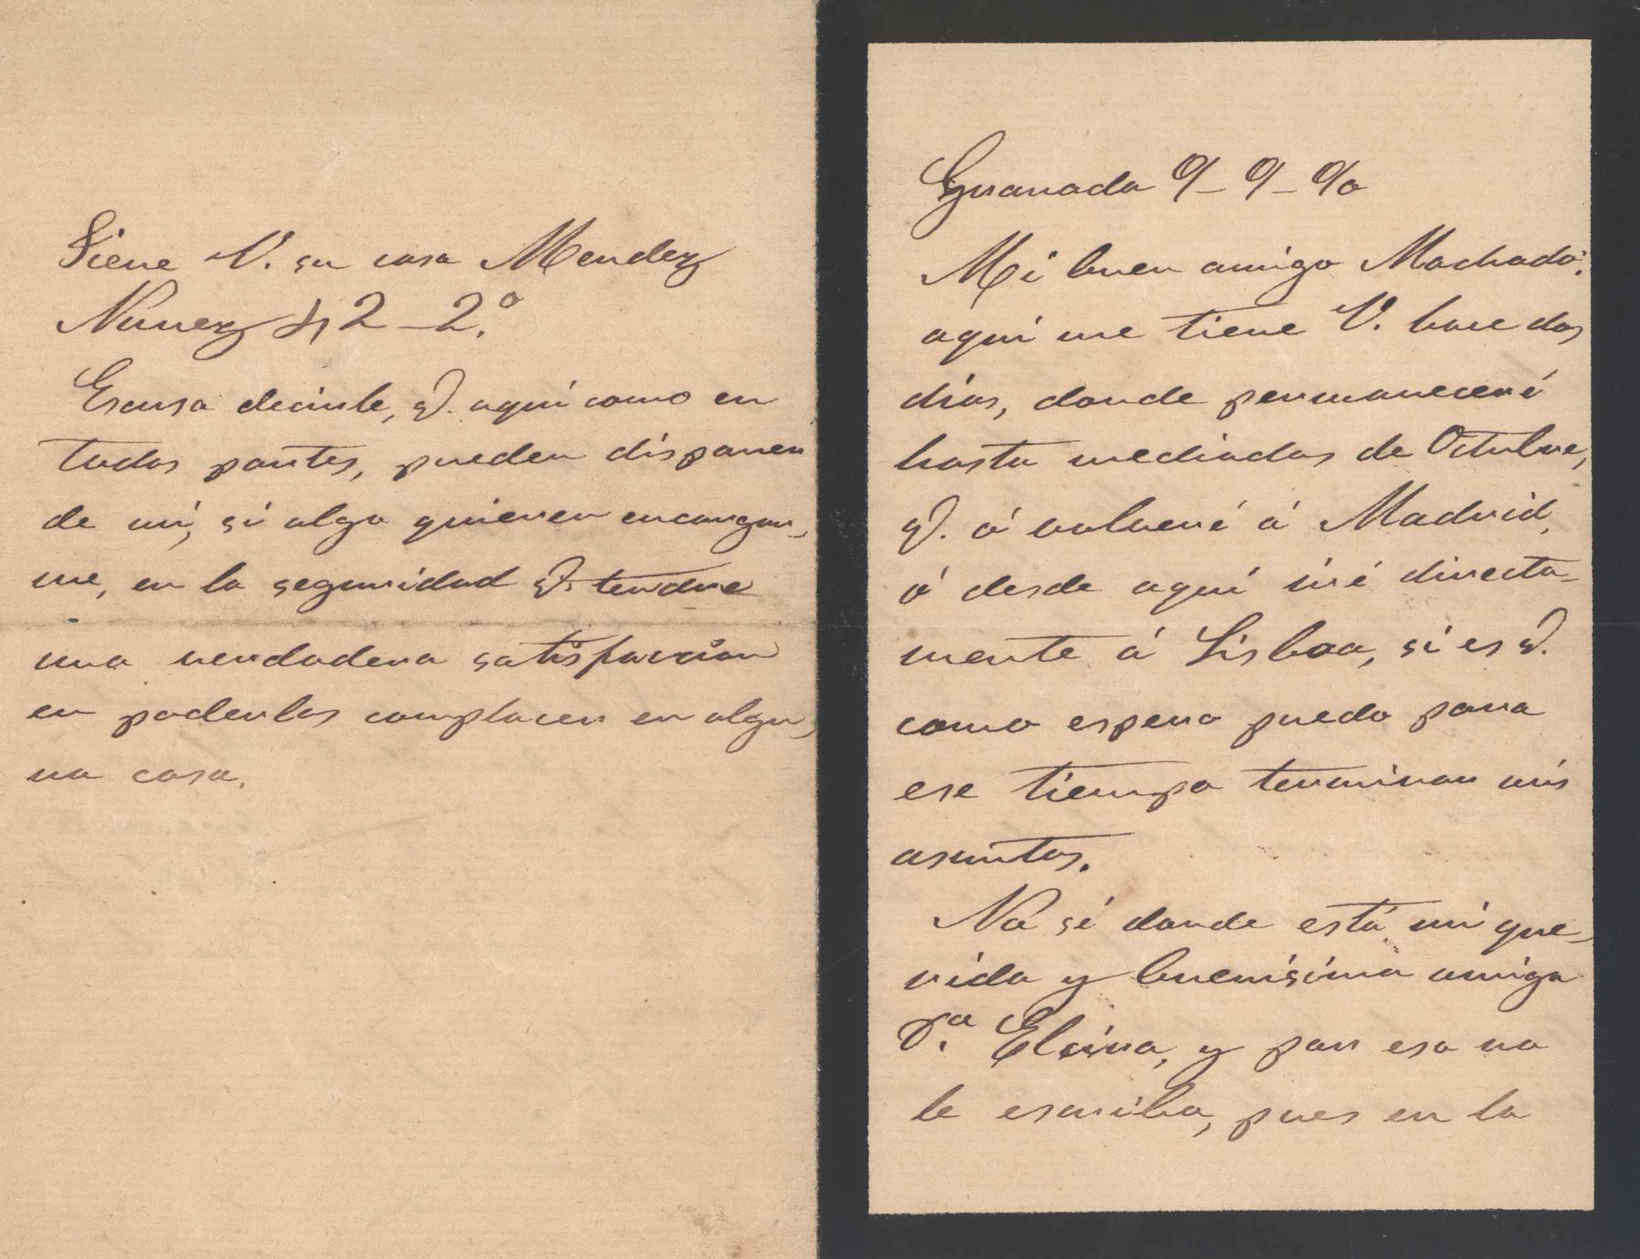 Tiene V. su casa Mendez
Nunez 42 - 2.º
Escusa decirle, q. aquí como en
todas partes, pueden disponer
de mí, si algo quieren encargar-
me, en la seguridad q. tendre
una verdadera satisfaccion
en poderlos complacer en algu-
na cosa.
Granada 9 - 9 - 90
Mi buen amigo Machado:
aquí me tiene V. hace dos
dias, donde permaneceré
hasta mediados de Octubre,
q. ó volveré á Madrid,
ó desde aquí iré directa-
mente á Lisboa, si es q.
como espero puedo para
ese tiempo terminar mis
asuntos.
No sé donde está mi que-
rida y buenísima amiga
D.ª y por eso no
le escribo, pues en la